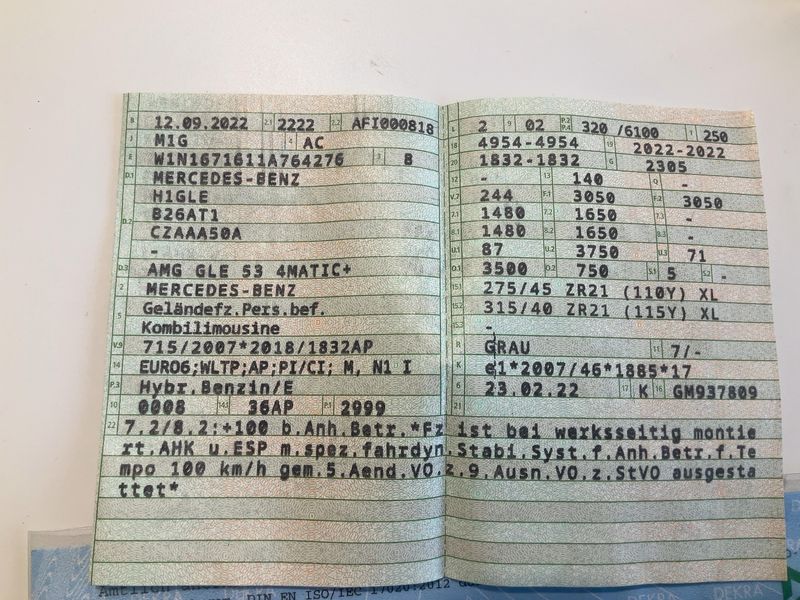 B 12.09.2022 2.1 2222 2.2 AFI000818
J M1G 4 AC
E W1N1671611A764276 3 8
D.1 MERCEDES-BENZ
H1GLE
D.2 B26AT1
CZAAA50A
-
D.3 AMG GLE 53 4MATIC+
2 MERCEDES-BENZ
5 Geländefz.Pers.bef.
Kombilimousine
V.9 715/2007*2018/1832AP
14 EURO6;WLTP;AP;PI/CI; M, N1 I
P.3 Hybr.Benzin/E
10 0008 14.1 36AP P.1 2999
L 2 9 02 P.2 P.4 320 /6100 T 250
18 4954-4954 19 2022-2022
20 1832-1832 G 2305
12 - 13 140 Q -
V.7 244 F.1 3050 F.2 3050
7.1 1480 7.2 1650 7.3 -
8.1 1480 8.2 1650 8.3 -
U.1 87 U.2 3750 U.3 71
O.1 3500 O.2 750 S.1 5 S.2 -
15.1 275/45 ZR21 (110Y) XL
15.2 315/40 ZR21 (115Y) XL
15.3 -
R GRAU 11 7/-
K e1*2007/46*1885*17
6 23.02.22 17 K 16 GM937809
21
22 7.2/8.2:+100 b.Anh.Betr.*Fz ist bei werksseitig montie
rt.AHK u.ESP m.spez.fahrdyn.Stabi.Syst.f.Anh.Betr.f.Te
mpo 100 km/h gem.5.Aend.VO.z.9.Ausn.VO.z.StVO ausgesta
ttet*
DIN EN ISO/IEC 17020:2012
DEKRA